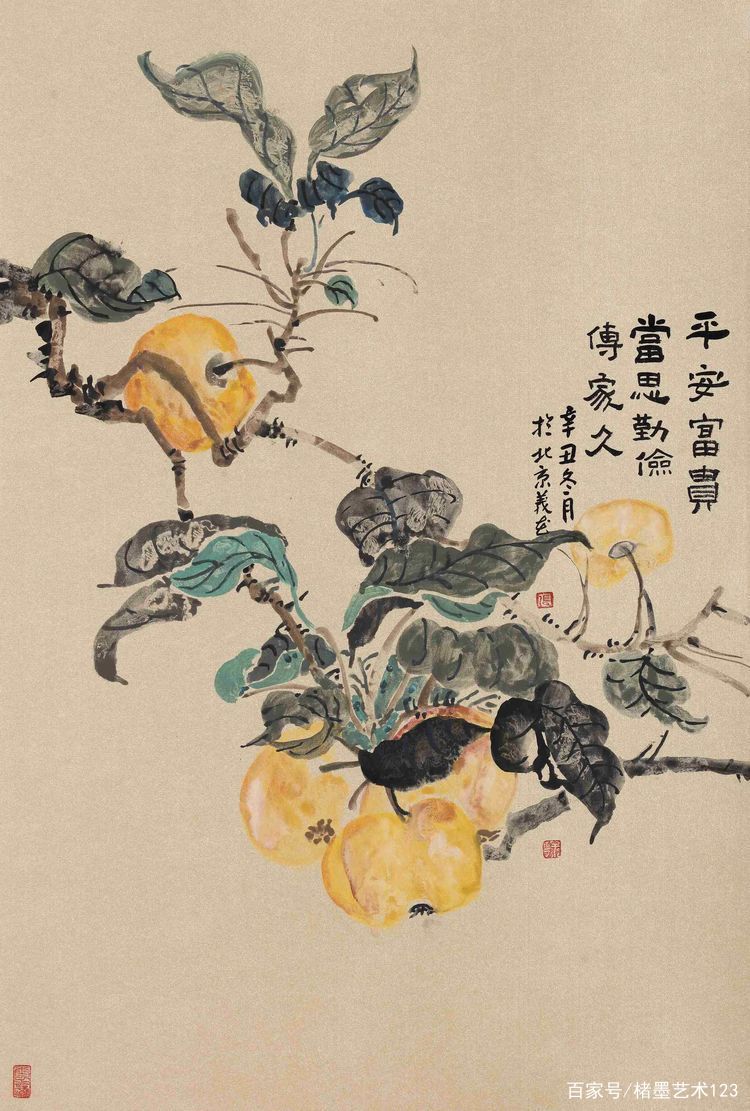 平安富貴
當思勤儉
傳家久
辛丑冬月
於北京義
百家号/楮墨艺术123